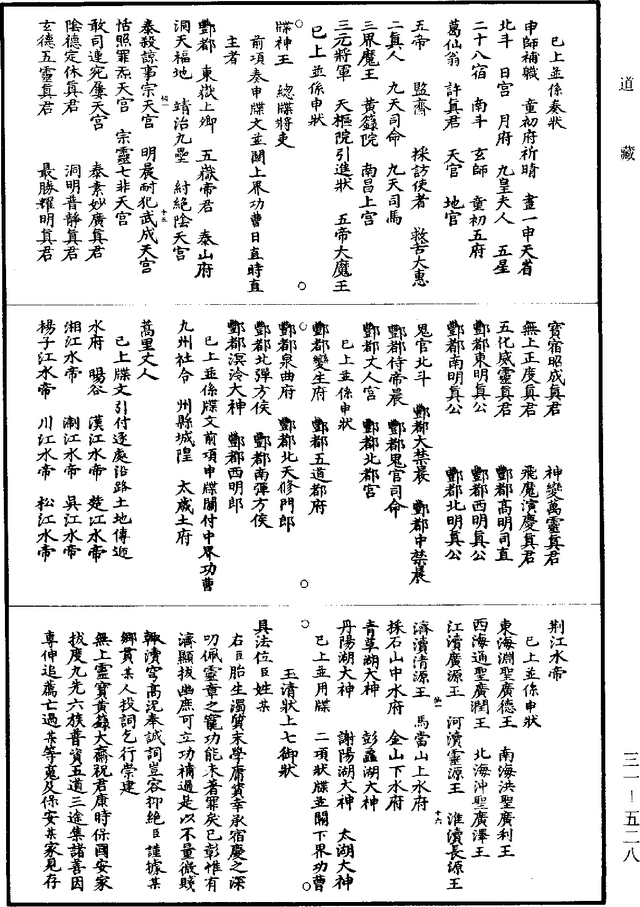 道藏
已上並係奏狀
申師補職　童初府祈晴　畫一申天省
北斗　日宮　月府　九皇夫人　五星
二十八宿　南斗　玄師　童初五府
葛仙翁　許真君　天官　地官
五帝　監齋　採訪使者　救苦大惠
二真人　九天司命　九天司馬
三界魔王　黃籙院　南昌上宮
三元將軍　天樞院引進狀　五帝大魔王
已上並係申狀
牒神王　總牒將吏
前項奏申牒文並關上界功曹日直時直
主者
酆都　東嶽上卿　五嶽帝君　泰山府
洞天福地　靖治九壘　紂絕陰天宮
泰殺諒事宗天宮　明晨耐犯武成天宮
恬照罪炁天宮　宗靈七非天宮
敢司連宛屢天宮　泰素妙廣真君
陰德定休真君　洞明普靜真君
玄德五靈真君　最勝耀明真君
寶宿昭成真君　神變萬靈真君
無上正度真君　飛魔演慶真君
五化威靈真君　酆都高明司直
酆都東明真公　酆都西明真公
酆都南明真公　酆都北明真公
鬼官北斗　酆都大禁晨　酆都中禁晨
酆都侍帝晨　酆都鬼官司命
酆都丈人宮　酆都北都宮
已上並係申狀
酆都變生府　酆都五道都府
酆都泉曲府　酆都北天修門郎
酆都北彈方侯　酆都南彈方侯
酆都溟泠大神　酆都西明郎
已上並係牒文前項申牒關付中界功曹
九州社令　州縣城隍　太歲土府
蒿里丈人
已上牒文引付逐處沿路土地傳遞
水府　暘谷　漢江水帝　楚江水帝
湘江水帝　淛江水帝　吳江水帝
楊子江水帝　川江水帝　松江水帝
荆江水帝
已上並係申狀
東海淵聖廣德王　南海洪聖廣利王
西海通聖廣潤王　北海沖聖廣澤王
江瀆廣源王　河瀆靈源王　淮瀆長源王
濟瀆清源王　馬當山上水府
採石山中水府　金山下水府
青草湖大神　彭蠡湖大神
丹陽湖大神　謝陽湖大神　太湖大神
已上並用牒　二項狀牒並關下界功曹
玉清狀上七御狀
具法位臣姓某
右臣胎生濁質末學庸資幸承宿慶之深
叨佩靈章之寵功能未著罪矣已彰惟有
濟顯拔幽庶可立功補過是以不量微賤
輒瀆穹高況奉誠詞豈容抑絕臣謹據某
鄉貫某人投詞乞行崇建
無上靈寶黃籙大齋祝君康時保國安家
拔度九先六族普資五道三途集諸善因
專伸追薦亡過某等魂及保安某家見存
三一—五二八